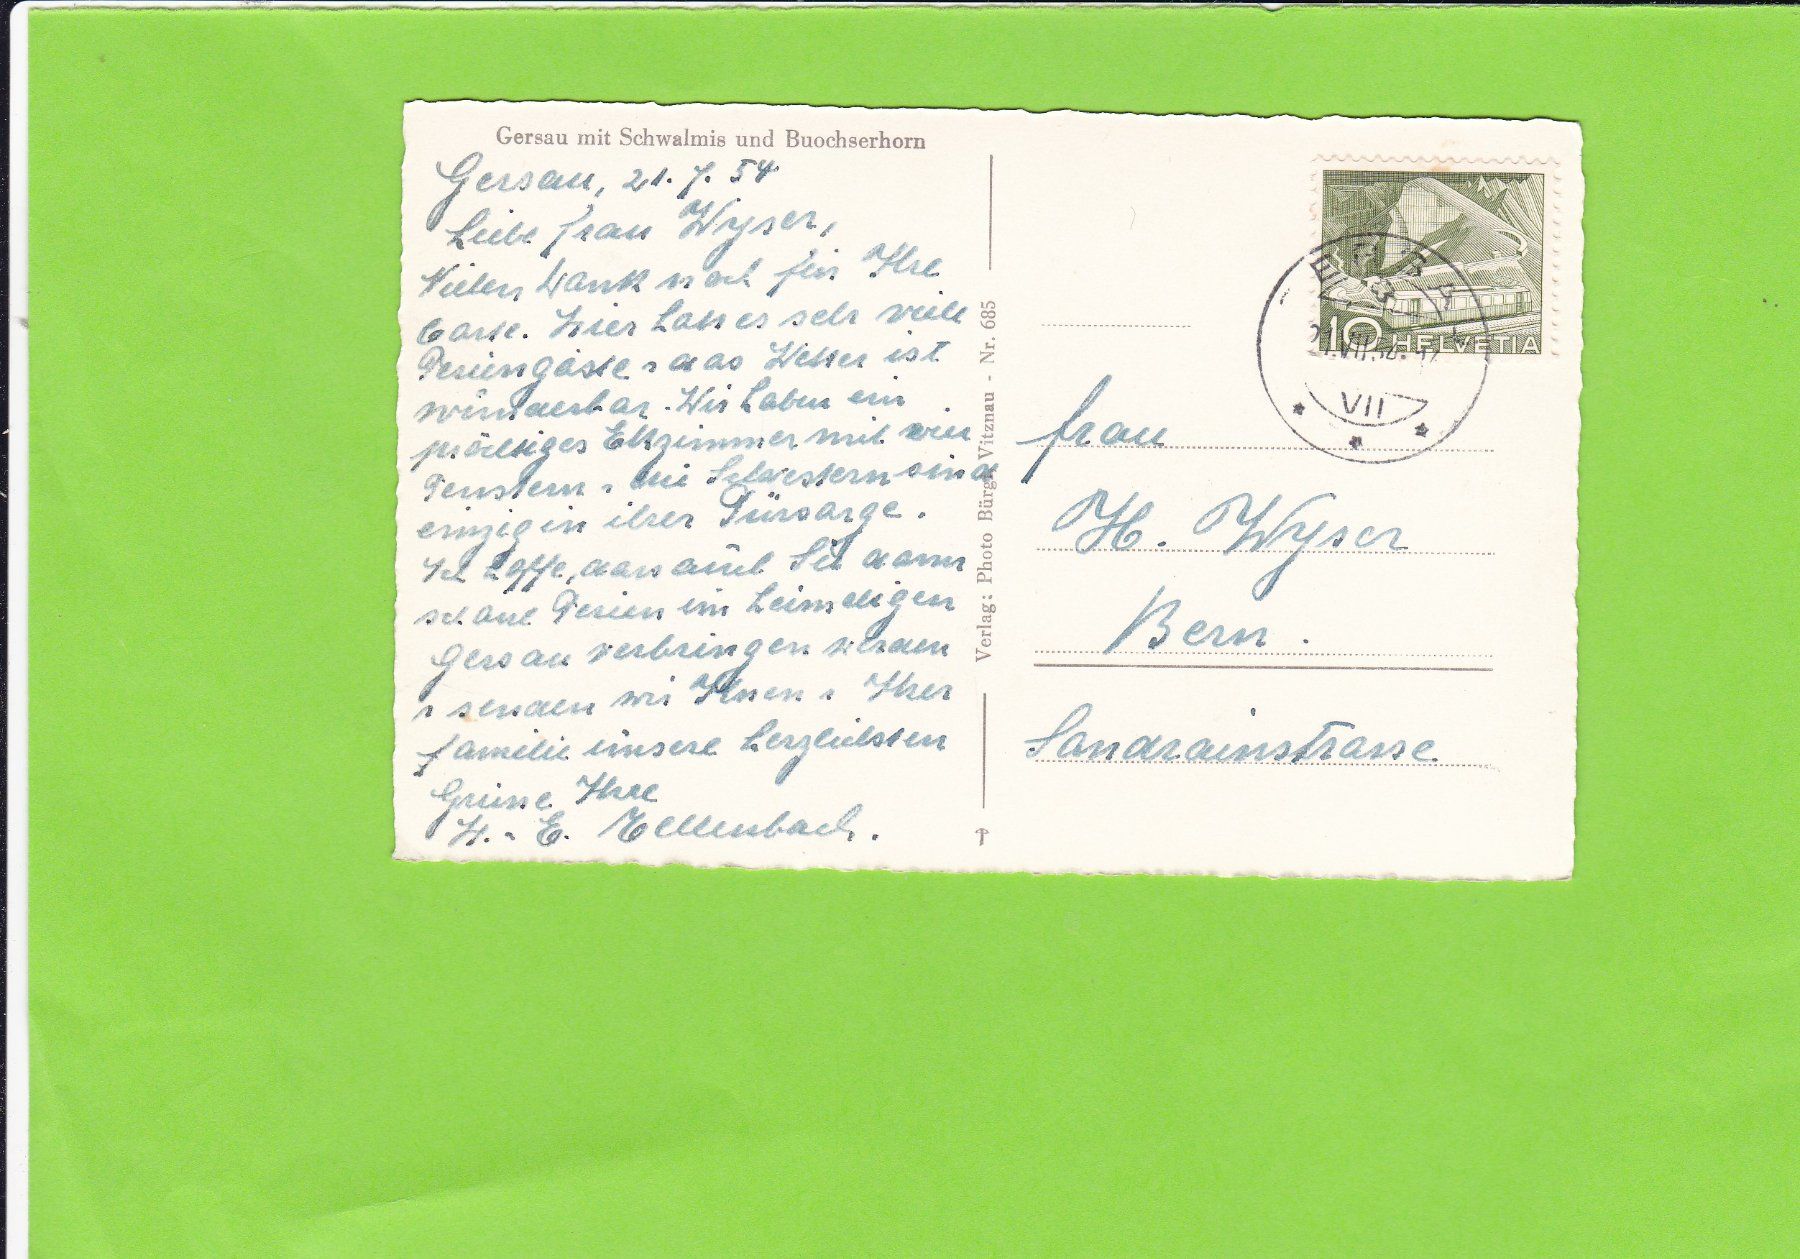 Gersau mit Schwalmis und Buochserhorn
Gersau, 21. 7. 54
Liebe Frau Wyser,
Vielen Dank noch für Ihre
Carte. Hier hat es sehr viele
Feriengäste u das Wetter ist
wunderbar. Wir haben ein
prächtiges Eckzimmer mit vier
Fenstern u die Schwestern sind
einzig in ihrer Fürsorge.
Ich hoffe, dass auch Sie dann
schöne Ferien im heimeligen
Gersau verbringen werden
u senden wir Ihnen u Ihrer
Familie unsere herzlichsten
Grüsse Ihre
H. u E. Ellenbach.
Verlag: Photo Bürgi Vitznau - Nr. 685
10 HELVETIA
VII
Frau
H. Wyser
Bern.
Sandrainstrasse